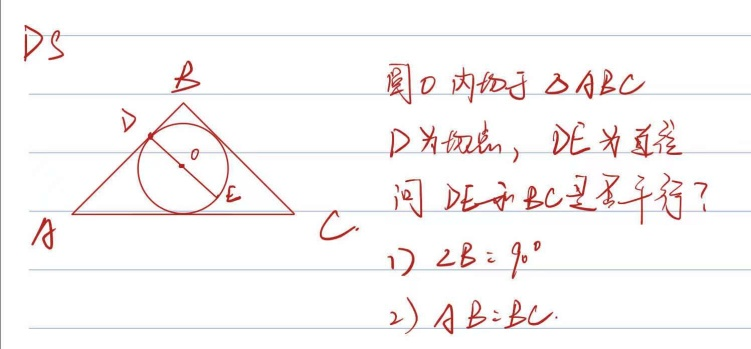 DS
B
D
O
E
A
C.
圆O内切于△ABC
D为切点，DE为直径
问 DE和BC是否平行？
1) ∠B=90°
2) AB=BC.